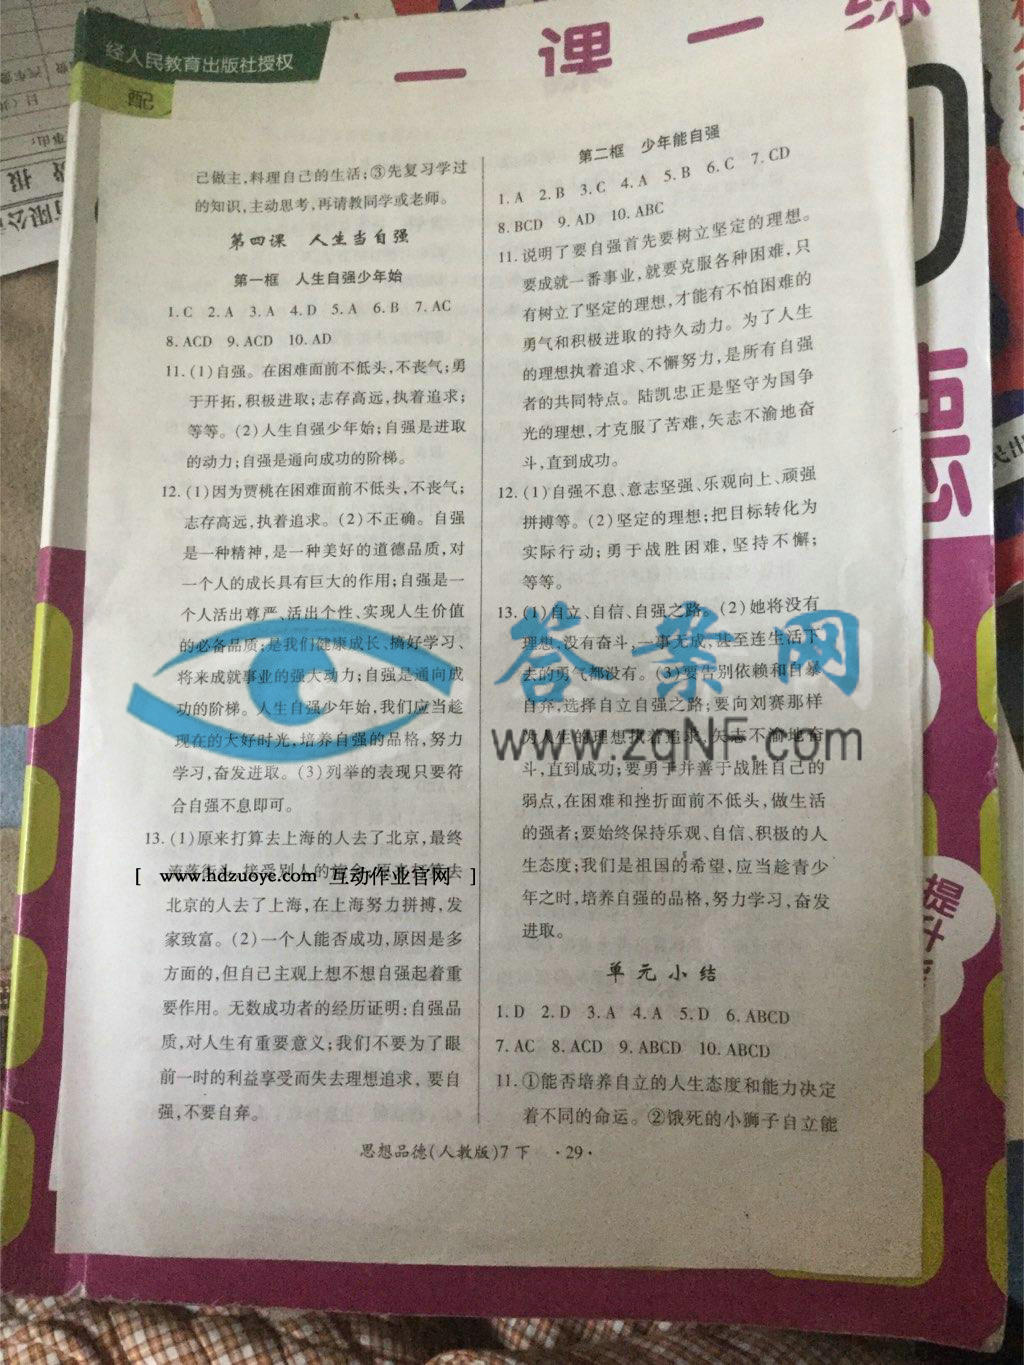 经人民教育出版社授权
配
一课一练
己做主,料理自己的生活;③先复习学过
的知识,主动思考,再请教同学或老师。
第四课 人生当自强
第一框 人生自强少年始
1.C 2.A 3.A 4.D 5.A 6.B 7.AC
8.ACD 9.ACD 10.AD
11.(1)自强。在困难面前不低头,不丧气;勇
于开拓,积极进取;志存高远,执着追求;
等等。(2)人生自强少年始;自强是进取
的动力;自强是通向成功的阶梯。
12.(1)因为贾桃在困难面前不低头,不丧气;
志存高远,执着追求。(2)不正确。自强
是一种精神,是一种美好的道德品质,对
一个人的成长具有巨大的作用;自强是一
个人活出尊严、活出个性、实现人生价值
的必备品质;是我们健康成长、搞好学习、
将来成就事业的强大动力;自强是通向成
功的阶梯。人生自强少年始,我们应当趁
现在的大好时光,培养自强的品格,努力
学习,奋发进取。(3)列举的表现只要符
合自强不息即可。
13.(1)原来打算去上海的人去了北京,最终
[ www.hdzuoye.com 互动作业官网 ]
北京的人去了上海,在上海努力拼搏,发
家致富。(2)一个人能否成功,原因是多
方面的,但自己主观上想不想自强起着重
要作用。无数成功者的经历证明:自强品
质,对人生有重要意义;我们不要为了眼
前一时的利益享受而失去理想追求,要自
强,不要自弃。
第二框 少年能自强
1.A 2.B 3.C 4.A 5.B 6.C 7.CD
8.BCD 9.AD 10.ABC
11.说明了要自强首先要树立坚定的理想。
要成就一番事业,就要克服各种困难,只
有树立了坚定的理想,才能有不怕困难的
勇气和积极进取的持久动力。为了人生
的理想执着追求、不懈努力,是所有自强
者的共同特点。陆凯忠正是坚守为国争
光的理想,才克服了苦难,矢志不渝地奋
斗,直到成功。
12.(1)自强不息、意志坚强、乐观向上、顽强
拼搏等。(2)坚定的理想;把目标转化为
实际行动;勇于战胜困难,坚持不懈;
等等。
13.(1)自立、自信、自强之路。(2)她将没有
理想,没有奋斗,一事无成,甚至连生活下
去的勇气都没有。(3)要告别依赖和自暴
自弃,选择自立自强之路;要向刘赛那样
为人生的理想执着追求,矢志不渝地奋
斗,直到成功;要勇于并善于战胜自己的
弱点,在困难和挫折面前不低头,做生活
的强者;要始终保持乐观、自信、积极的人
生态度;我们是祖国的希望,应当趁青少
年之时,培养自强的品格,努力学习,奋发
进取。
单元小结
1.D 2.D 3.A 4.A 5.D 6.ABCD
7.AC 8.ACD 9.ABCD 10.ABCD
11.①能否培养自立的人生态度和能力决定
着不同的命运。②饿死的小狮子自立能
思想品德(人教版)7下 ·29·
答案网
www.zqNF.com
提升